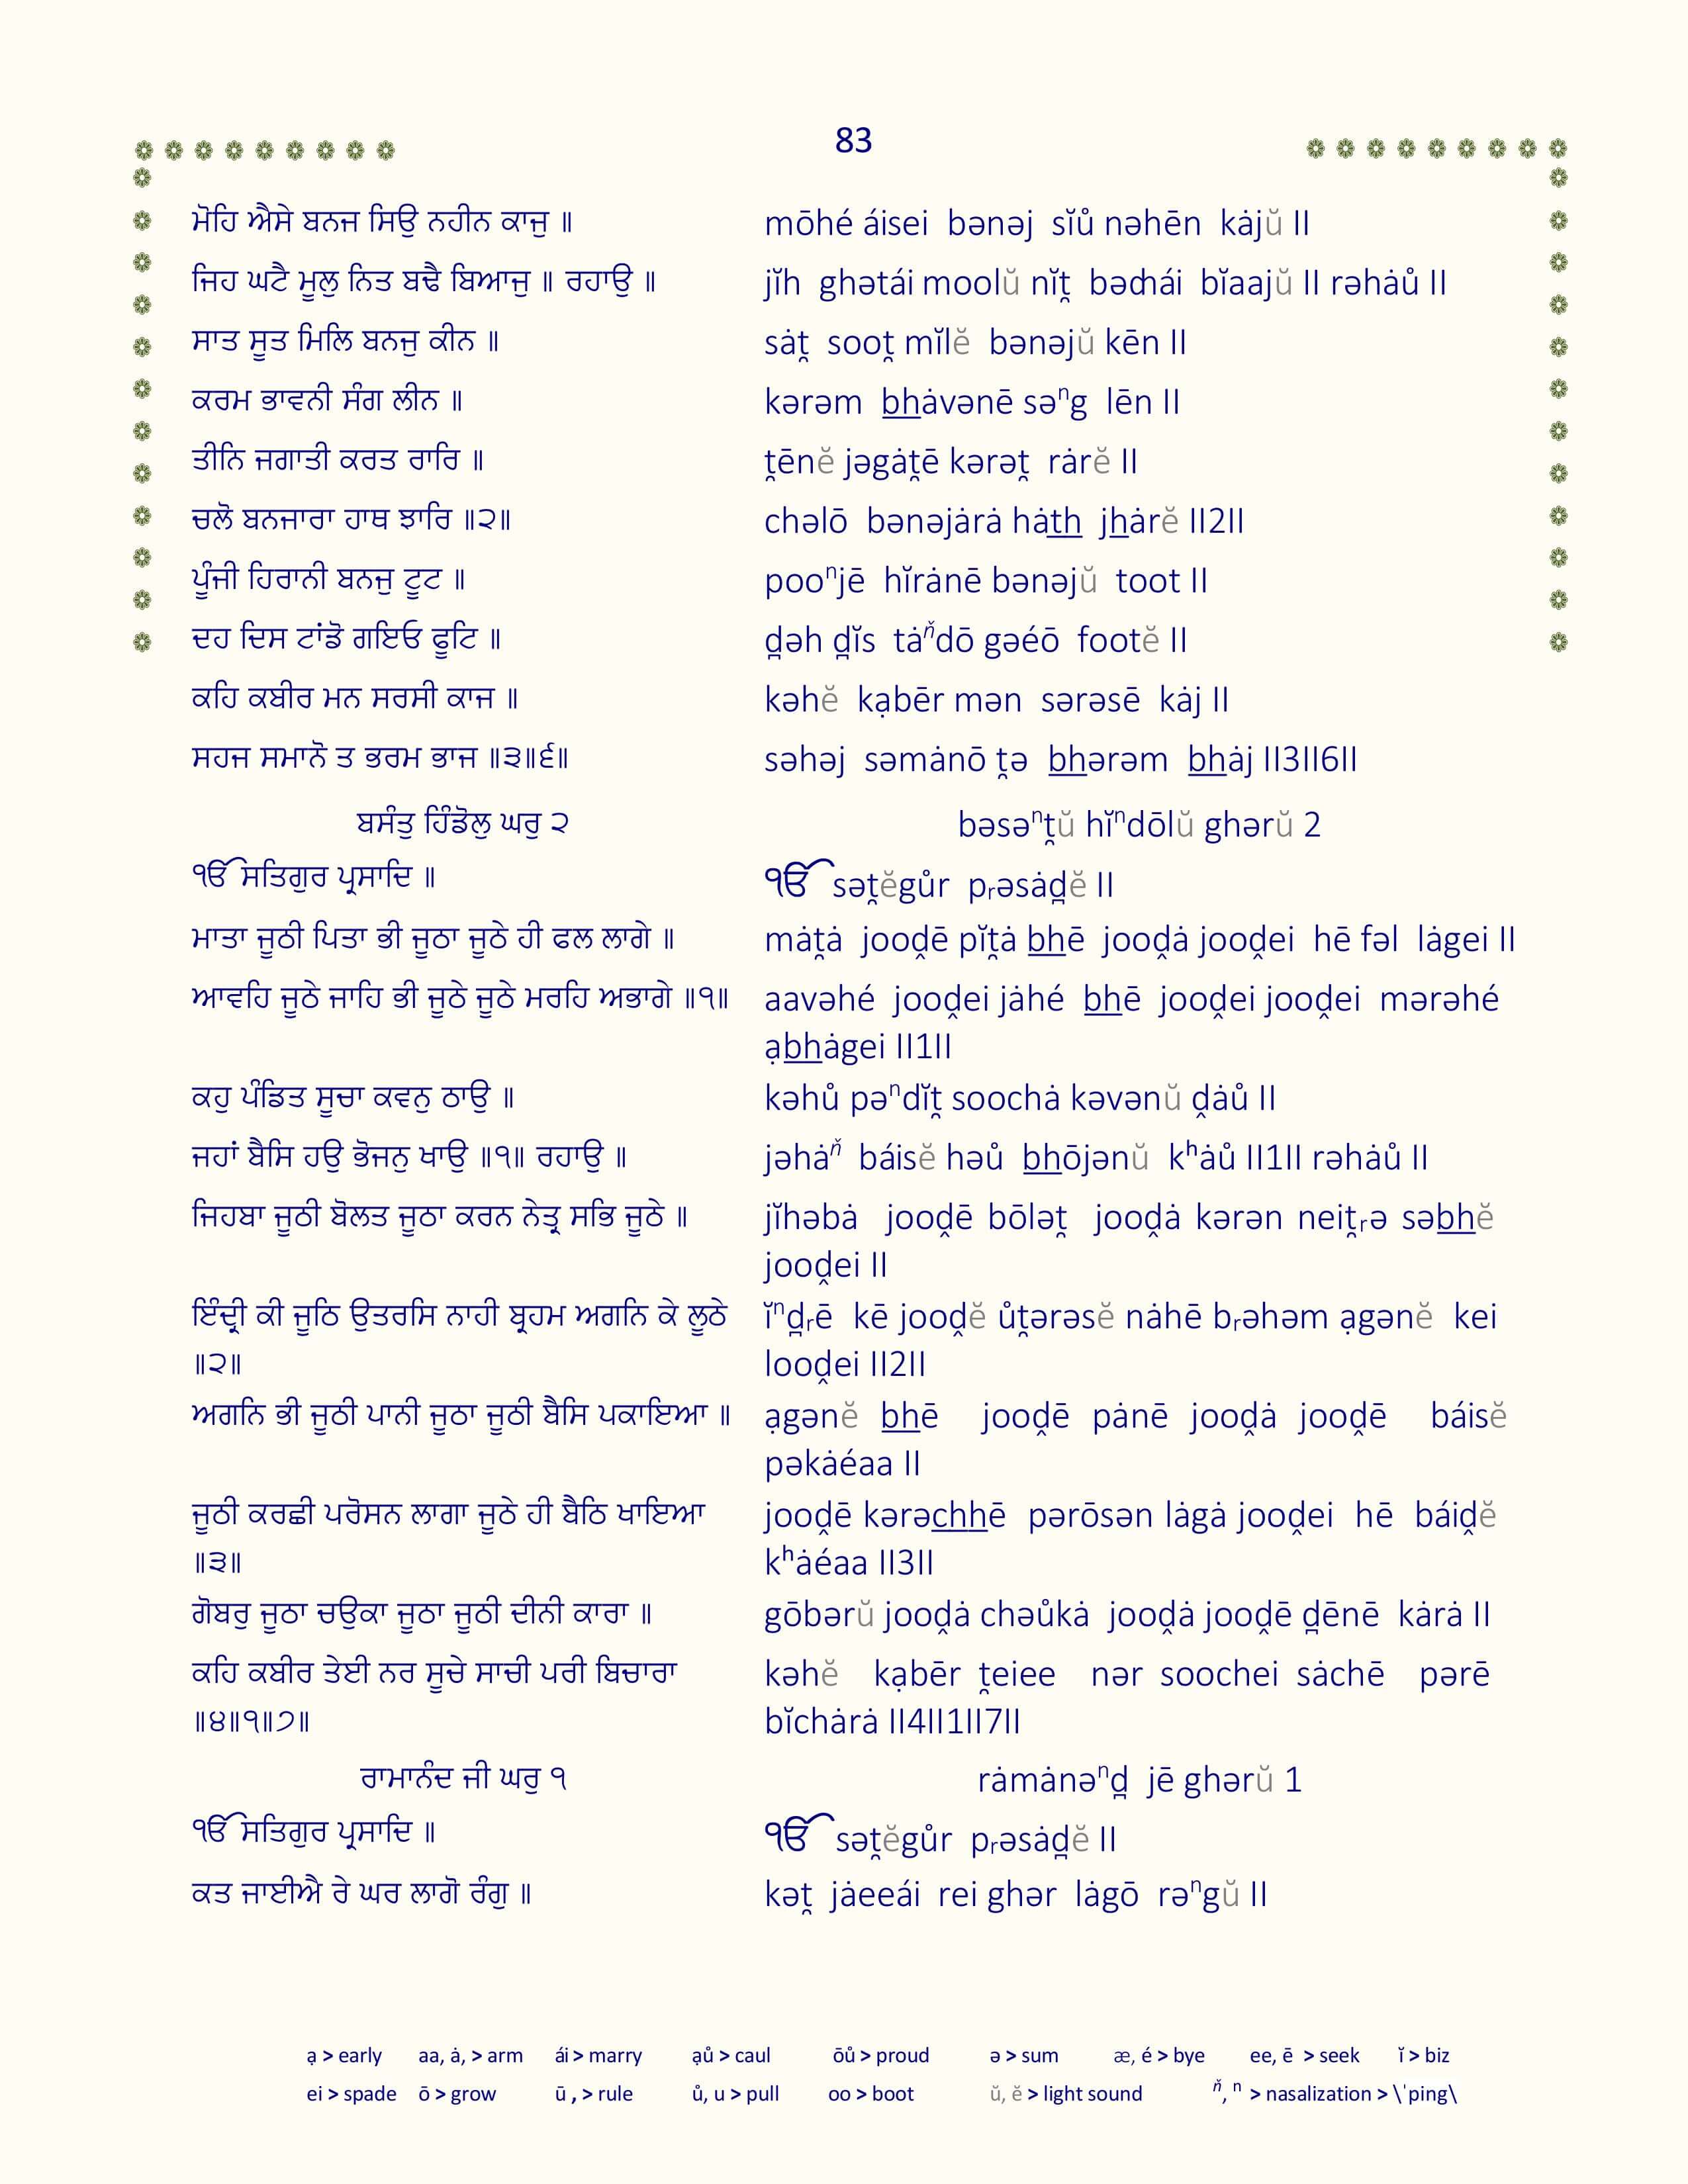 83
ਮੋਹਿ ਐਸੇ ਬਨਜ ਸਿਉ ਨਹੀਨ ਕਾਜੁ ॥ mōhé áisei bənəj sĭů nəhēn kȧjŭ II
ਜਿਹ ਘਟੈ ਮੂਲੁ ਨਿਤ ਬਢੈ ਬਿਆਜੁ ॥ ਰਹਾਉ ॥ jĭh ghətái moolŭ nĭt̯ bəȸái bĭaajŭ II rəhȧů II
ਸਾਤ ਸੂਤ ਮਿਲਿ ਬਨਜੁ ਕੀਨ ॥ sȧt̯ soot̯ mĭlĕ bənəjŭ kēn II
ਕਰਮ ਭਾਵਨੀ ਸੰਗ ਲੀਨ ॥ kərəm b̲h̲ȧvənē səⁿg lēn II
ਤੀਨਿ ਜਗਾਤੀ ਕਰਤ ਰਾਰਿ ॥ t̯ēnĕ jəgȧt̯ē kərət̯ rȧrĕ II
ਚਲੋ ਬਨਜਾਰਾ ਹਾਥ ਝਾਰਿ ॥੨॥ chəlō bənəjȧrȧ hȧt̲h̲ jh̲ȧrĕ II2II
ਪੂੰਜੀ ਹਿਰਾਨੀ ਬਨਜੁ ਟੂਟ ॥ pooⁿjē hĭrȧnē bənəjŭ toot II
ਦਹ ਦਿਸ ਟਾਂਡੋ ਗਇਓ ਫੂਟਿ ॥ d̪əh d̪ĭs tȧňdō gəéō footĕ II
ਕਹਿ ਕਬੀਰ ਮਨ ਸਰਸੀ ਕਾਜ ॥ kəhĕ kạbēr mən sərəsē kȧj II
ਸਹਜ ਸਮਾਨੋ ਤ ਭਰਮ ਭਾਜ ॥੩॥੬॥ səhəj səmȧnō t̯ə b̲h̲ərəm b̲h̲ȧj II3II6II
ਬਸੰਤੁ ਹਿੰਡੋਲੁ ਘਰੁ ੨ bəsəⁿt̯ŭ hĭⁿdōlŭ ghərŭ 2
ੴ ਸਤਿਗੁਰ ਪ੍ਰਸਾਦਿ ॥ ੴ sət̯ĕgůr pᵣəsȧd̪ĕ II
ਮਾਤਾ ਜੂਠੀ ਪਿਤਾ ਭੀ ਜੂਠਾ ਜੂਠੇ ਹੀ ਫਲ ਲਾਗੇ ॥ mȧt̯ȧ jooḓē pĭt̯ȧ b̲h̲ē jooḓȧ jooḓei hē fəl lȧgei II
ਆਵਹਿ ਜੂਠੇ ਜਾਹਿ ਭੀ ਜੂਠੇ ਜੂਠੇ ਮਰਹਿ ਅਭਾਗੇ ॥੧॥ aavəhé jooḓei jȧhé b̲h̲ē jooḓei jooḓei mərəhé
ạb̲h̲ȧgei II1II
ਕਹੁ ਪੰਡਿਤ ਸੂਚਾ ਕਵਨੁ ਠਾਉ ॥ kəhů pəⁿdĭt̯ soochȧ kəvənŭ ḓȧů II
ਜਹਾਂ ਬੈਸਿ ਹਉ ਭੋਜਨੁ ਖਾਉ ॥੧॥ ਰਹਾਉ ॥ jəhȧň báisĕ həů b̲h̲ōjənŭ kʰȧů II1II rəhȧů II
ਜਿਹਬਾ ਜੂਠੀ ਬੋਲਤ ਜੂਠਾ ਕਰਨ ਨੇਤ੍ਰ ਸਭਿ ਜੂਠੇ ॥ jĭhəbȧ jooḓē bōlət̯ jooḓȧ kərən neit̯ᵣə səb̲h̲ĕ
jooḓei II
ਇੰਦ੍ਰੀ ਕੀ ਜੂਠਿ ਉਤਰਸਿ ਨਾਹੀ ਬ੍ਰਹਮ ਅਗਨਿ ਕੇ ਲੂਠੇ ĭⁿd̪ᵣē kē jooḓĕ ůt̯ərəsĕ nȧhē bᵣəhəm ạgənĕ kei
॥੨॥ looḓei II2II
ਅਗਨਿ ਭੀ ਜੂਠੀ ਪਾਨੀ ਜੂਠਾ ਜੂਠੀ ਬੈਸਿ ਪਕਾਇਆ ॥ ạgənĕ b̲h̲ē jooḓē pȧnē jooḓȧ jooḓē báisĕ
pəkȧéaa II
ਜੂਠੀ ਕਰਛੀ ਪਰੋਸਨ ਲਾਗਾ ਜੂਠੇ ਹੀ ਬੈਠਿ ਖਾਇਆ jooḓē kərəc̲h̲h̲ē pərōsən lȧgȧ jooḓei hē báiḓĕ
॥੩॥ kʰȧéaa II3II
ਗੋਬਰੁ ਜੂਠਾ ਚਉਕਾ ਜੂਠਾ ਜੂਠੀ ਦੀਨੀ ਕਾਰਾ ॥ gōbərŭ jooḓȧ chəůkȧ jooḓȧ jooḓē d̪ēnē kȧrȧ II
ਕਹਿ ਕਬੀਰ ਤੇਈ ਨਰ ਸੂਚੇ ਸਾਚੀ ਪਰੀ ਬਿਚਾਰਾ kəhĕ kạbēr t̯eiee nər soochei sȧchē pərē
॥੪॥੧॥੭॥ bĭchȧrȧ II4II1II7II
ਰਾਮਾਨੰਦ ਜੀ ਘਰੁ ੧ rȧmȧnəⁿd̪ jē ghərŭ 1
ੴ ਸਤਿਗੁਰ ਪ੍ਰਸਾਦਿ ॥ ੴ sət̯ĕgůr pᵣəsȧd̪ĕ II
ਕਤ ਜਾਈਐ ਰੇ ਘਰ ਲਾਗੋ ਰੰਗੁ ॥ kət̯ jȧeeái rei ghər lȧgō rəⁿgŭ II
ạ > early aa, ȧ, > arm ái > marry ạů > caul ōů > proud ə > sum æ, é > bye ee, ē > seek ĭ > biz
ei > spade ō > grow ū , > rule ů, u > pull oo > boot ŭ, ĕ > light sound ň, ⁿ > nasalization > \ˈping\